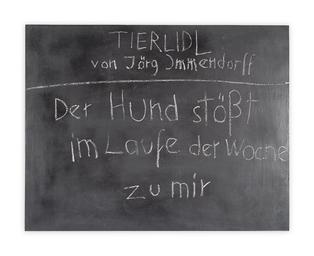 TIERLIDL
von Jörg Immendorff
Der Hund stößt
im Laufe der Woche
zu mir